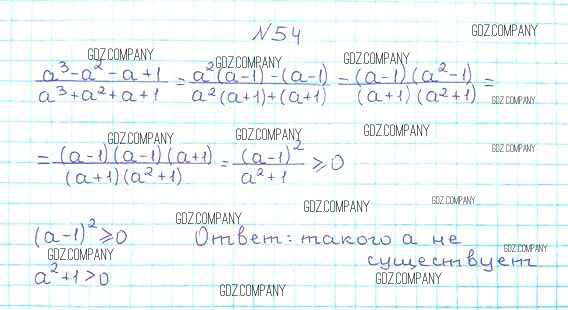 №54
GDZ.COMPANY
GDZ.COMPANY GDZ.COMPANY GDZ.COMPANY
(a³-a²-a+1)/(a³+a²+a+1) = (a²(a-1)-(a-1))/(a²(a+1)+(a+1)) = ((a-1)(a²-1))/((a+1)(a²+1)) =
GDZ.COMPANY
GDZ.COMPANY GDZ.COMPANY GDZ.COMPANY
GDZ.COMPANY
= ((a-1)(a-1)(a+1))/((a+1)(a²+1)) = (a-1)²/(a²+1) ⩾0
GDZ.COMPANY GDZ.COMPANY GDZ.COMPANY
(a-1)²⩾0 Ответ: такого а не
GDZ.COMPANY существует GDZ.COMPANY
a²+1>0 GDZ.COMPANY
GDZ.COMPANY